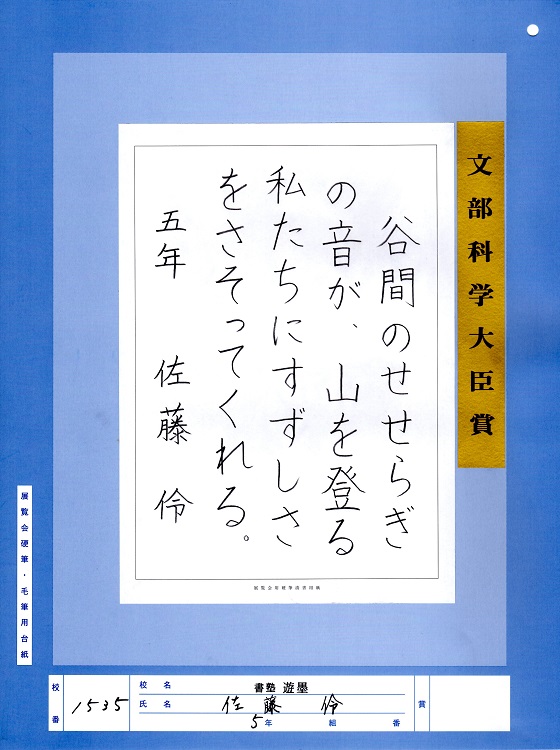 文部科学大臣賞
谷間のせせらぎ
の音が、山を登る
私たちにすずしさ
をさそってくれる。
五年 佐藤伶
展覧会硬筆清書用紙
展覧会硬筆・毛筆用台紙
校番 1535
校名 書塾 遊墨
氏名 佐藤 伶
5年 組 番
賞